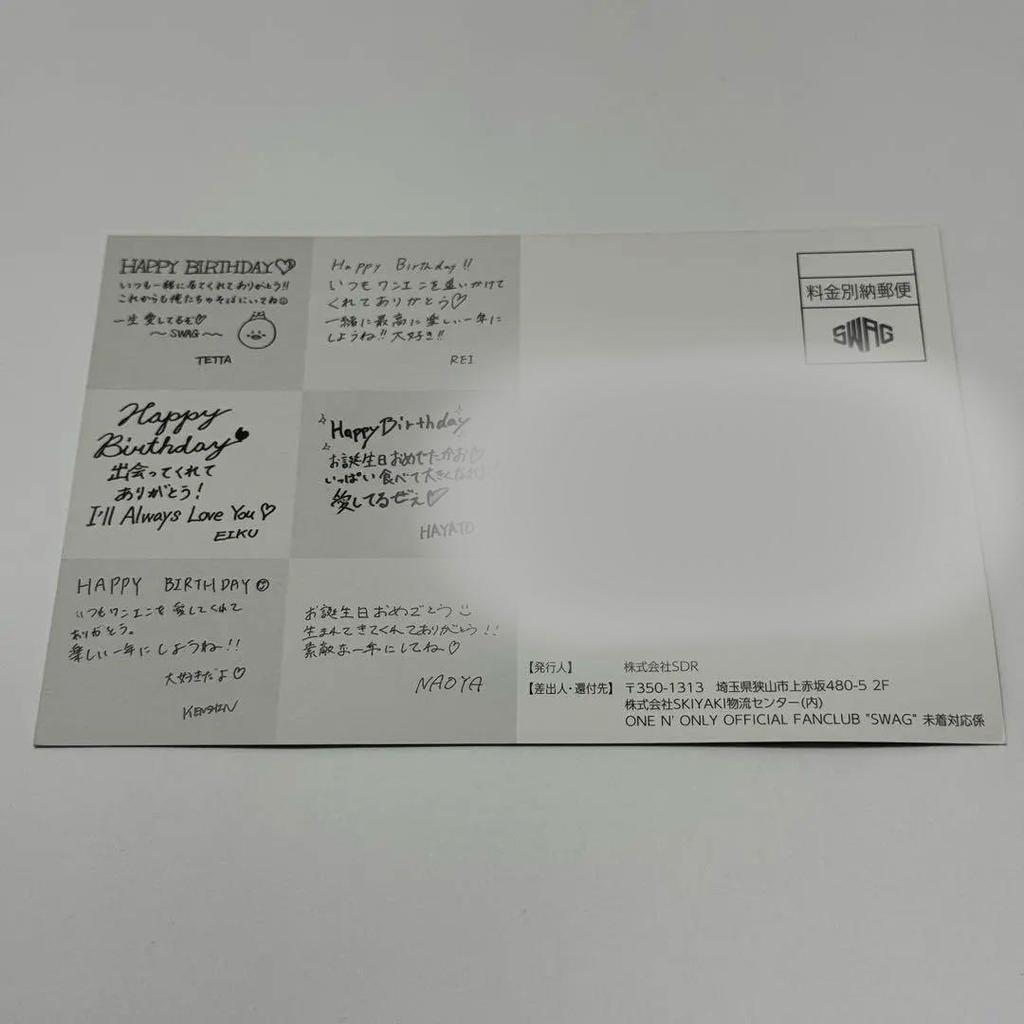 HAPPY BIRTHDAY♡
いつも一緒に居てくれてありがとう!!
これからも俺たちのそばにいてね☺
一生愛してるぞ♡
〜SWAG〜
TETTA
Happy Birthday!!
いつもワンエンを追いかけて
くれてありがとう♡
一緒に最高に楽しい一年に
しようね!!大好き!!
REI
Happy
Birthday
出会ってくれて
ありがとう!
I'll Always Love You♡
EIKU
Happy Birthday
お誕生日おめでたかお♡
いっぱい食べて大きく
愛してるぜぇ♡
HAYATO
HAPPY BIRTHDAY☺
いつもワンエンを愛してくれて
ありがとう。
楽しい一年にしようね!!
大好きだよ♡
KENSHIN
お誕生日おめでとう☺
生まれてきてくれてありがとう!!
素敵な一年にしてね♡
NAOYA
料金別納郵便
SWAG
【発行人】 株式会社SDR
【差出人・還付先】 〒350-1313 埼玉県狭山市上赤坂480-5 2F
株式会社SKIYAKI物流センター(内)
ONE N' ONLY OFFICIAL FANCLUB "SWAG" 未着対応係